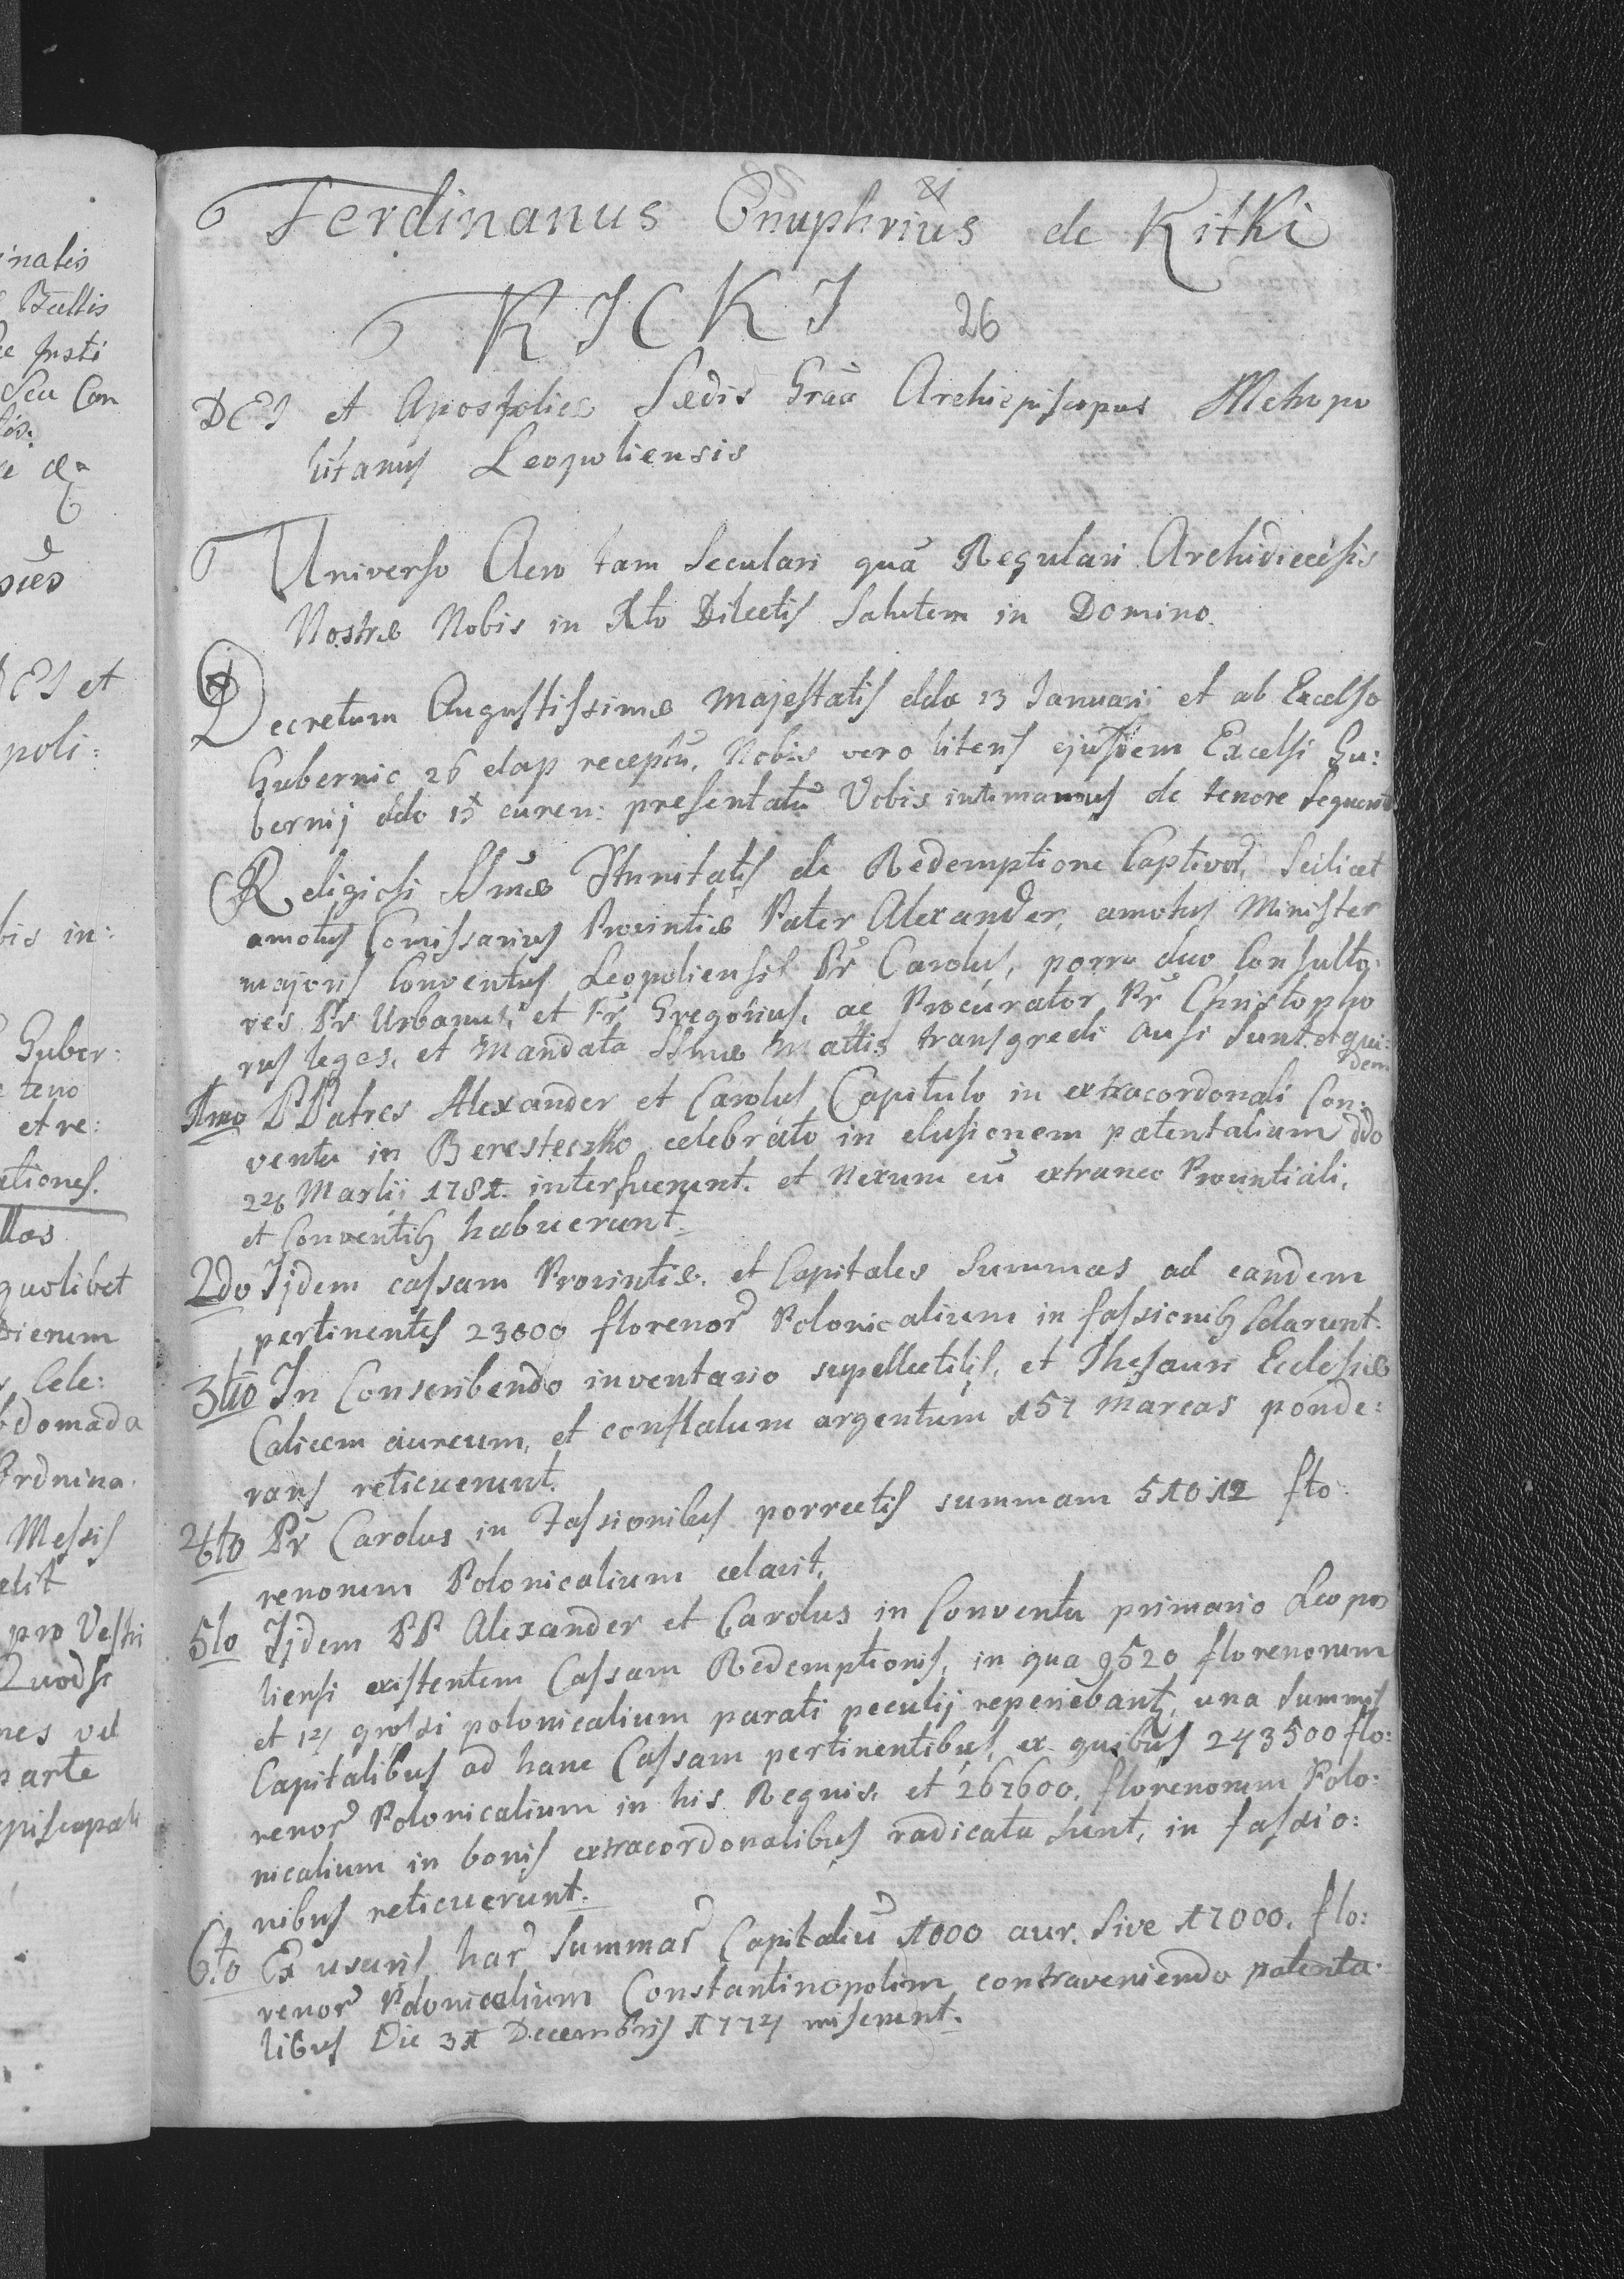 inalis
Bullis
Insti
Seu Con
DEI et
poli:
bis in:
Guber:
teno
et re:
ationes.
quolibet
dierum
Cele:
bdomada
Ordnina
Messis
pro Vestri
Quodsi
nes vel
parte
episcopali
Ferdinanus Onuphrius de Kitki
KICKI 26
DEI et Apostolicæ Sædis Graã Archiepiscopus Metropo
litanus Leopoliensis
Universo Clero tam Seculari quã Regulari Archidiecesis
Nostræ Nobis in Xto Dilectis Salutem in Domino.
Decretum Augustissimæ Majestatis ddo 13 Januarii et ab Excelso
Gubernio 26 elap receptũ, Nobis vero literis ejusdem Excelsi Gu:
bernij ddo 15 curen: presentatũ Vobis intimamus de tenore sequenti
Religiosi SSmæ Trinitatis de Redemptione Captivor̃, Scilicet
amotus Comissarius Provintiæ Pater Alexander, amotus Minister
majoris Conventus Leopoliensis Pr̃ Carolus, porro duo Consulto
res Pr Urbanus, et Pr̃ Gregorius, ac Procurator Pr̃ Christopho
rus leges, et Mandata SSmæ Mattis transgredi ausi sunt. et qui:
dem
1mo PPatres Alexander et Carolus Capitulo in extracordonali Con:
ventu in Beresteczko celebrato in elusionem patentalium ddo
24 Martij 1781. interfuerunt. et Nexum cũ extraneo Provintiali,
et Conventib9 habuerunt.
2do Ijdem cassam Provintiæ, et Capitales Summas ad eandem
pertinentes 23000 florenor̃ Polonicalium in fassionib9 Celarunt.
3tio In Conscribendo inventario supellectilis, et Thesauri Ecclesiæ
Calicem aureum, et conflatum argentum 157 Marcas ponde:
rans reticuerunt.
4to Pr̃ Carolus in Fassionibus porrectis summam 51012 flo
renorum Polonicalium celavit.
5to Ijdem PP Alexander et Carolus in Conventu primario Leopo
liensi existentem Cassam Redemptionis, in qua 9520 florenorum
et 14 grossi polonicalium parati peculij reperiebant9, una Summis
Capitalibus ad hanc Cassam pertinentibus, ex quibus 243500 flo:
renor̃ Polonicalium in his Regnis, et 267600. florenorum Polo:
nicalium in bonis extracordonalibus radicata sunt, in fassio:
nibus reticuerunt.
6to Ex usuris har̃ Summar̃ Capitaliũ 1000 aur. sive 17000. flo:
renor̃ Polonicalium Constantinopolim contraveniendo patenta
libus Die 31 Decembris 1774 miserunt.